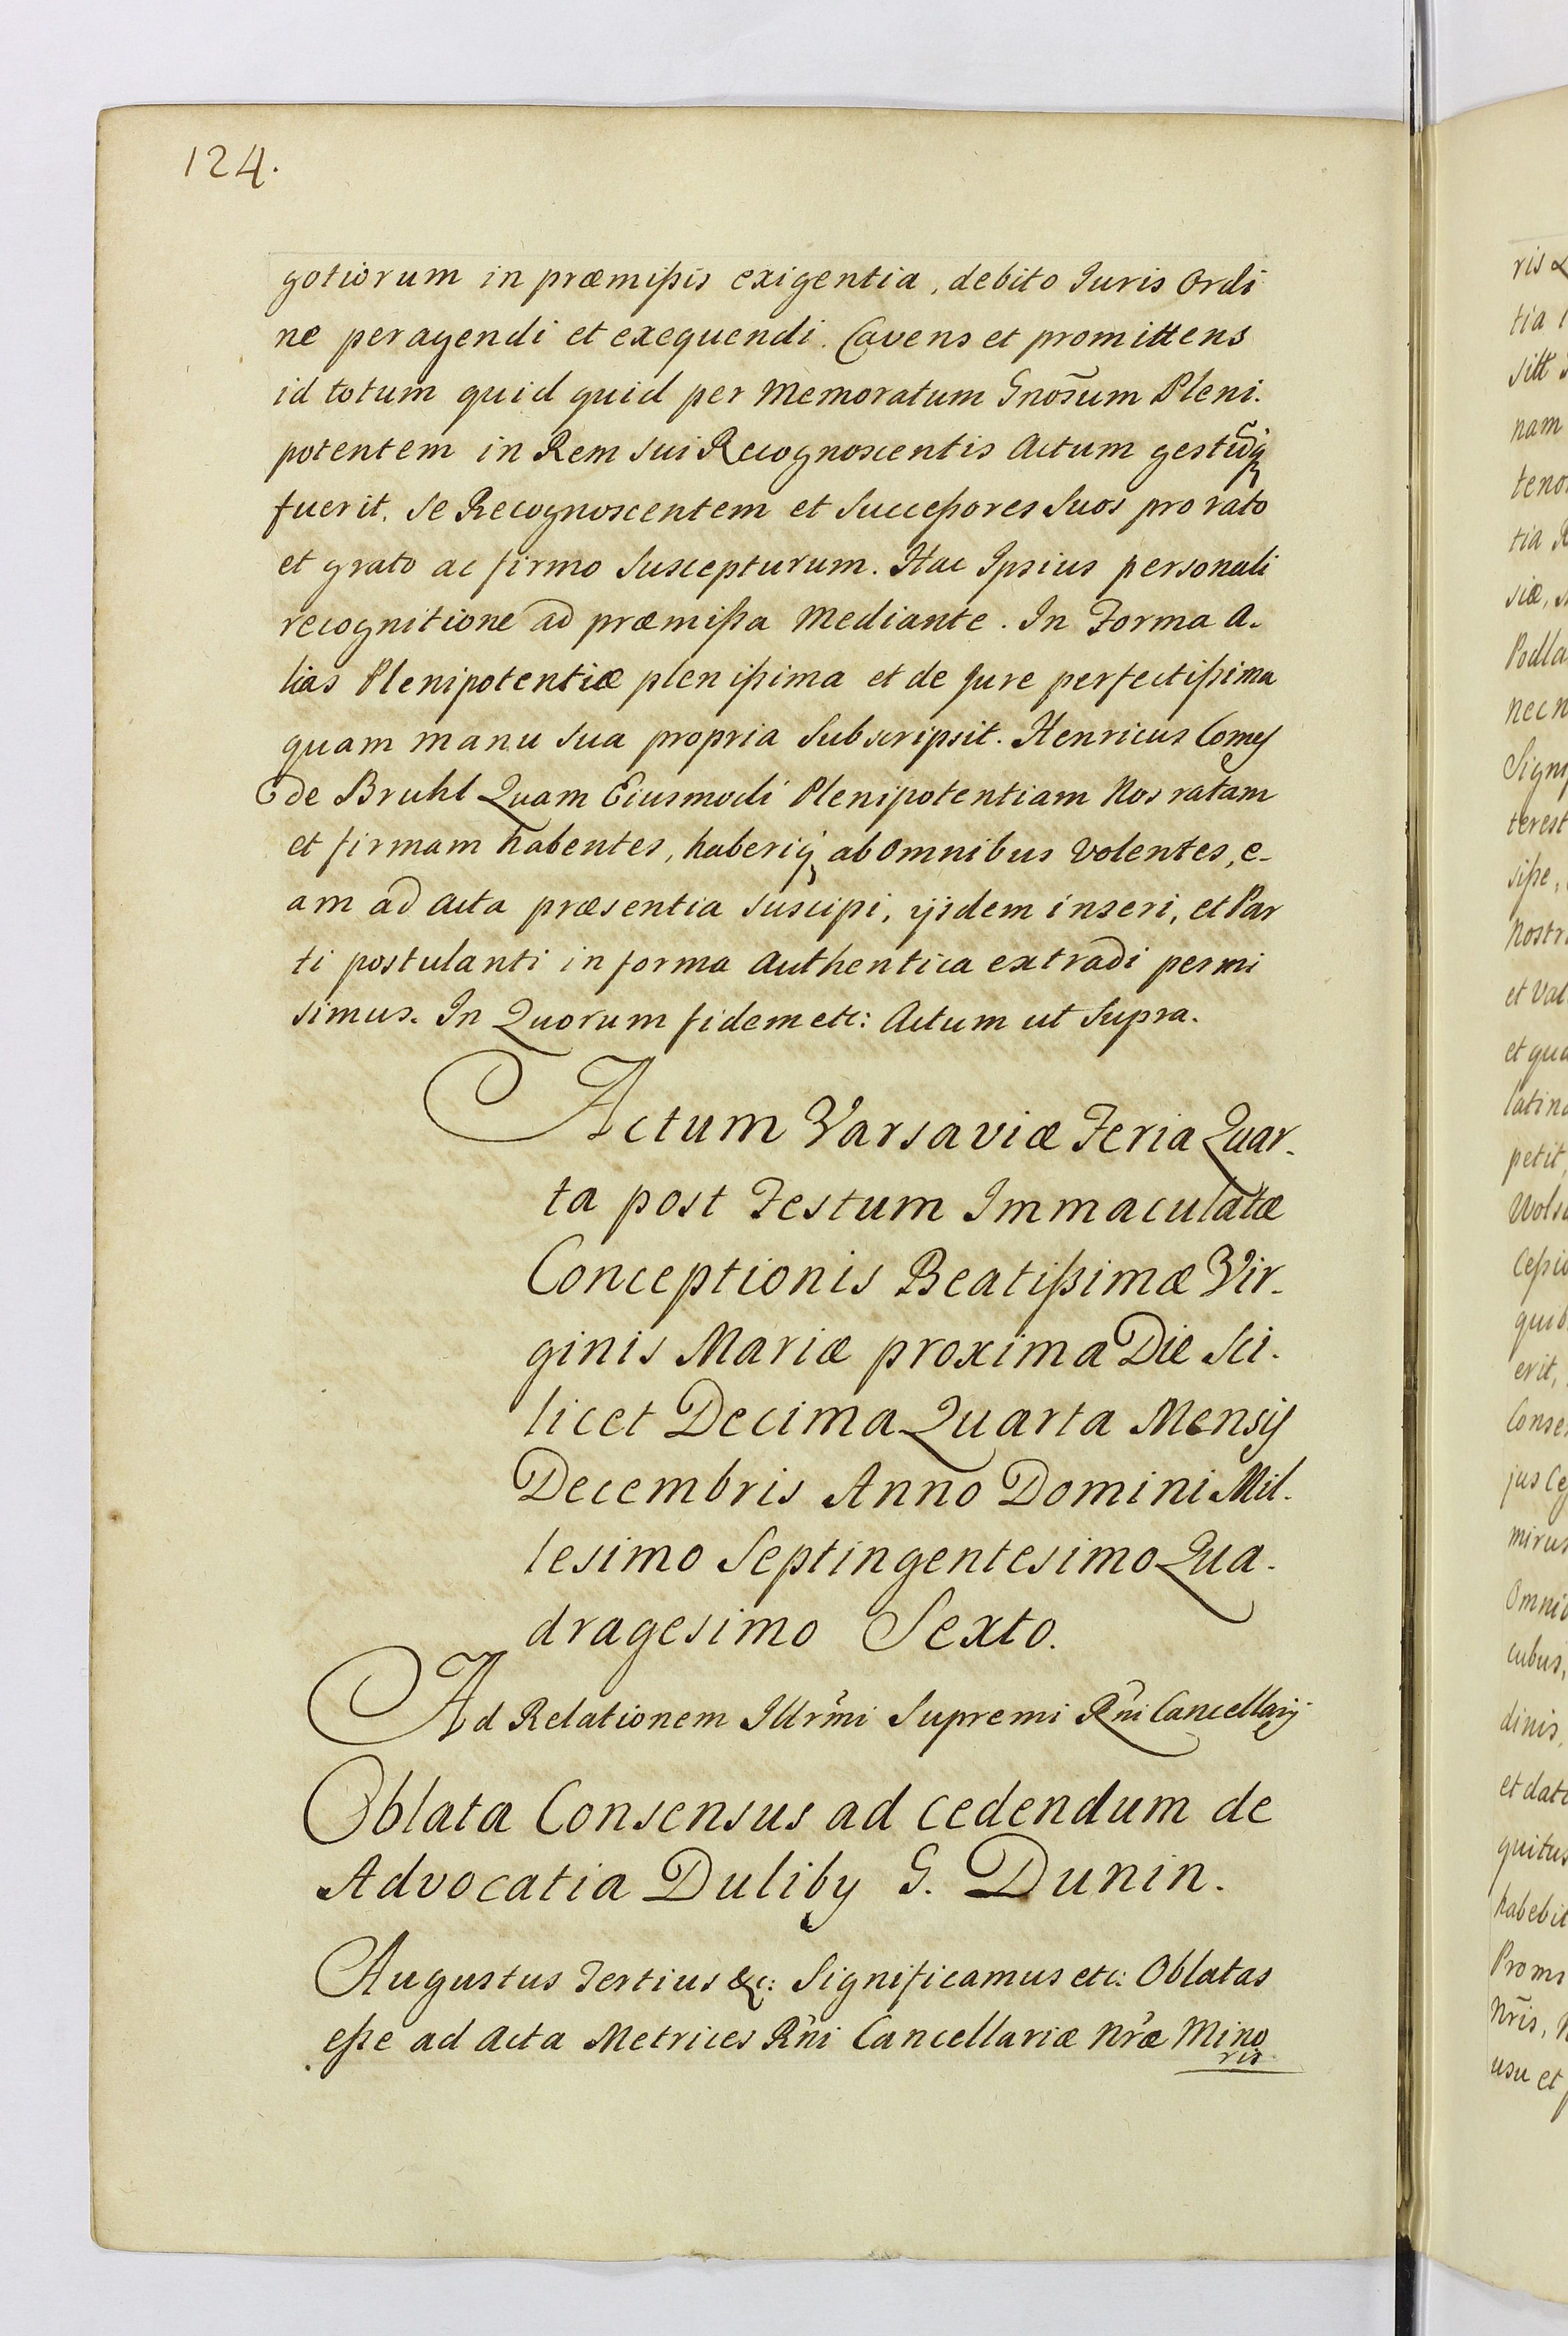 124.
gotiorum in præmißis exigentia, debito Iuris Ordi
ne peragendi et exequendi. Cavens et promittens
id totum quid quid per Memoratum Gnõsum Pleni-
potentem in Rem sui Recognoscentis Actum gestũq;
fuerit, se Recognoscentem et Succeßores Suos pro rato
et grato ac firmo Suscepturum. Hac Ipsius personali
recognitione ad præmißa Mediante. In Forma A-
lias Plenipotentiæ plenißima et de Jure perfectißima
quam manu sua propria Subscripsit. Henricus Comes
de Bruhl Quam Eiusmodi Plenipotentiam Nos ratam
et firmam habentes, haberiq; ab Omnibus Volentes, e-
am ad Acta præsentia suscipi, ijsdem inseri, et Par
ti postulanti in forma Authentica extradi permi
simus. In Quorum fidem etc: Actum ut Supra.
Actum Varsaviæ Feria Quar-
ta post Festum Immaculatæ
Conceptionis Beatißimæ Vir-
ginis Mariæ proxima Die Sci-
licet Decima Quarta Mensis
Decembris Anno Domini Mil-
lesimo Septingentesimo Qua-
dragesimo Sexto.
Ad Relationem Illrmi Supremi Rni Cancellarij
Oblata Consensus ad cedendum de
Advocatia Duliby G. Dunin.
Augustus Tertius &c: Significamus etc: Oblatas
eße ad Acta Metrices Rni Cancellariæ Nræ Mino
ris
tia
sitt
nam
tia
Podla
nec n
terest
siße,
et Val
et qua
latina
petit,
erit,
jus
cubus,
dinis,
et dat
habebit
Nris,
usu et